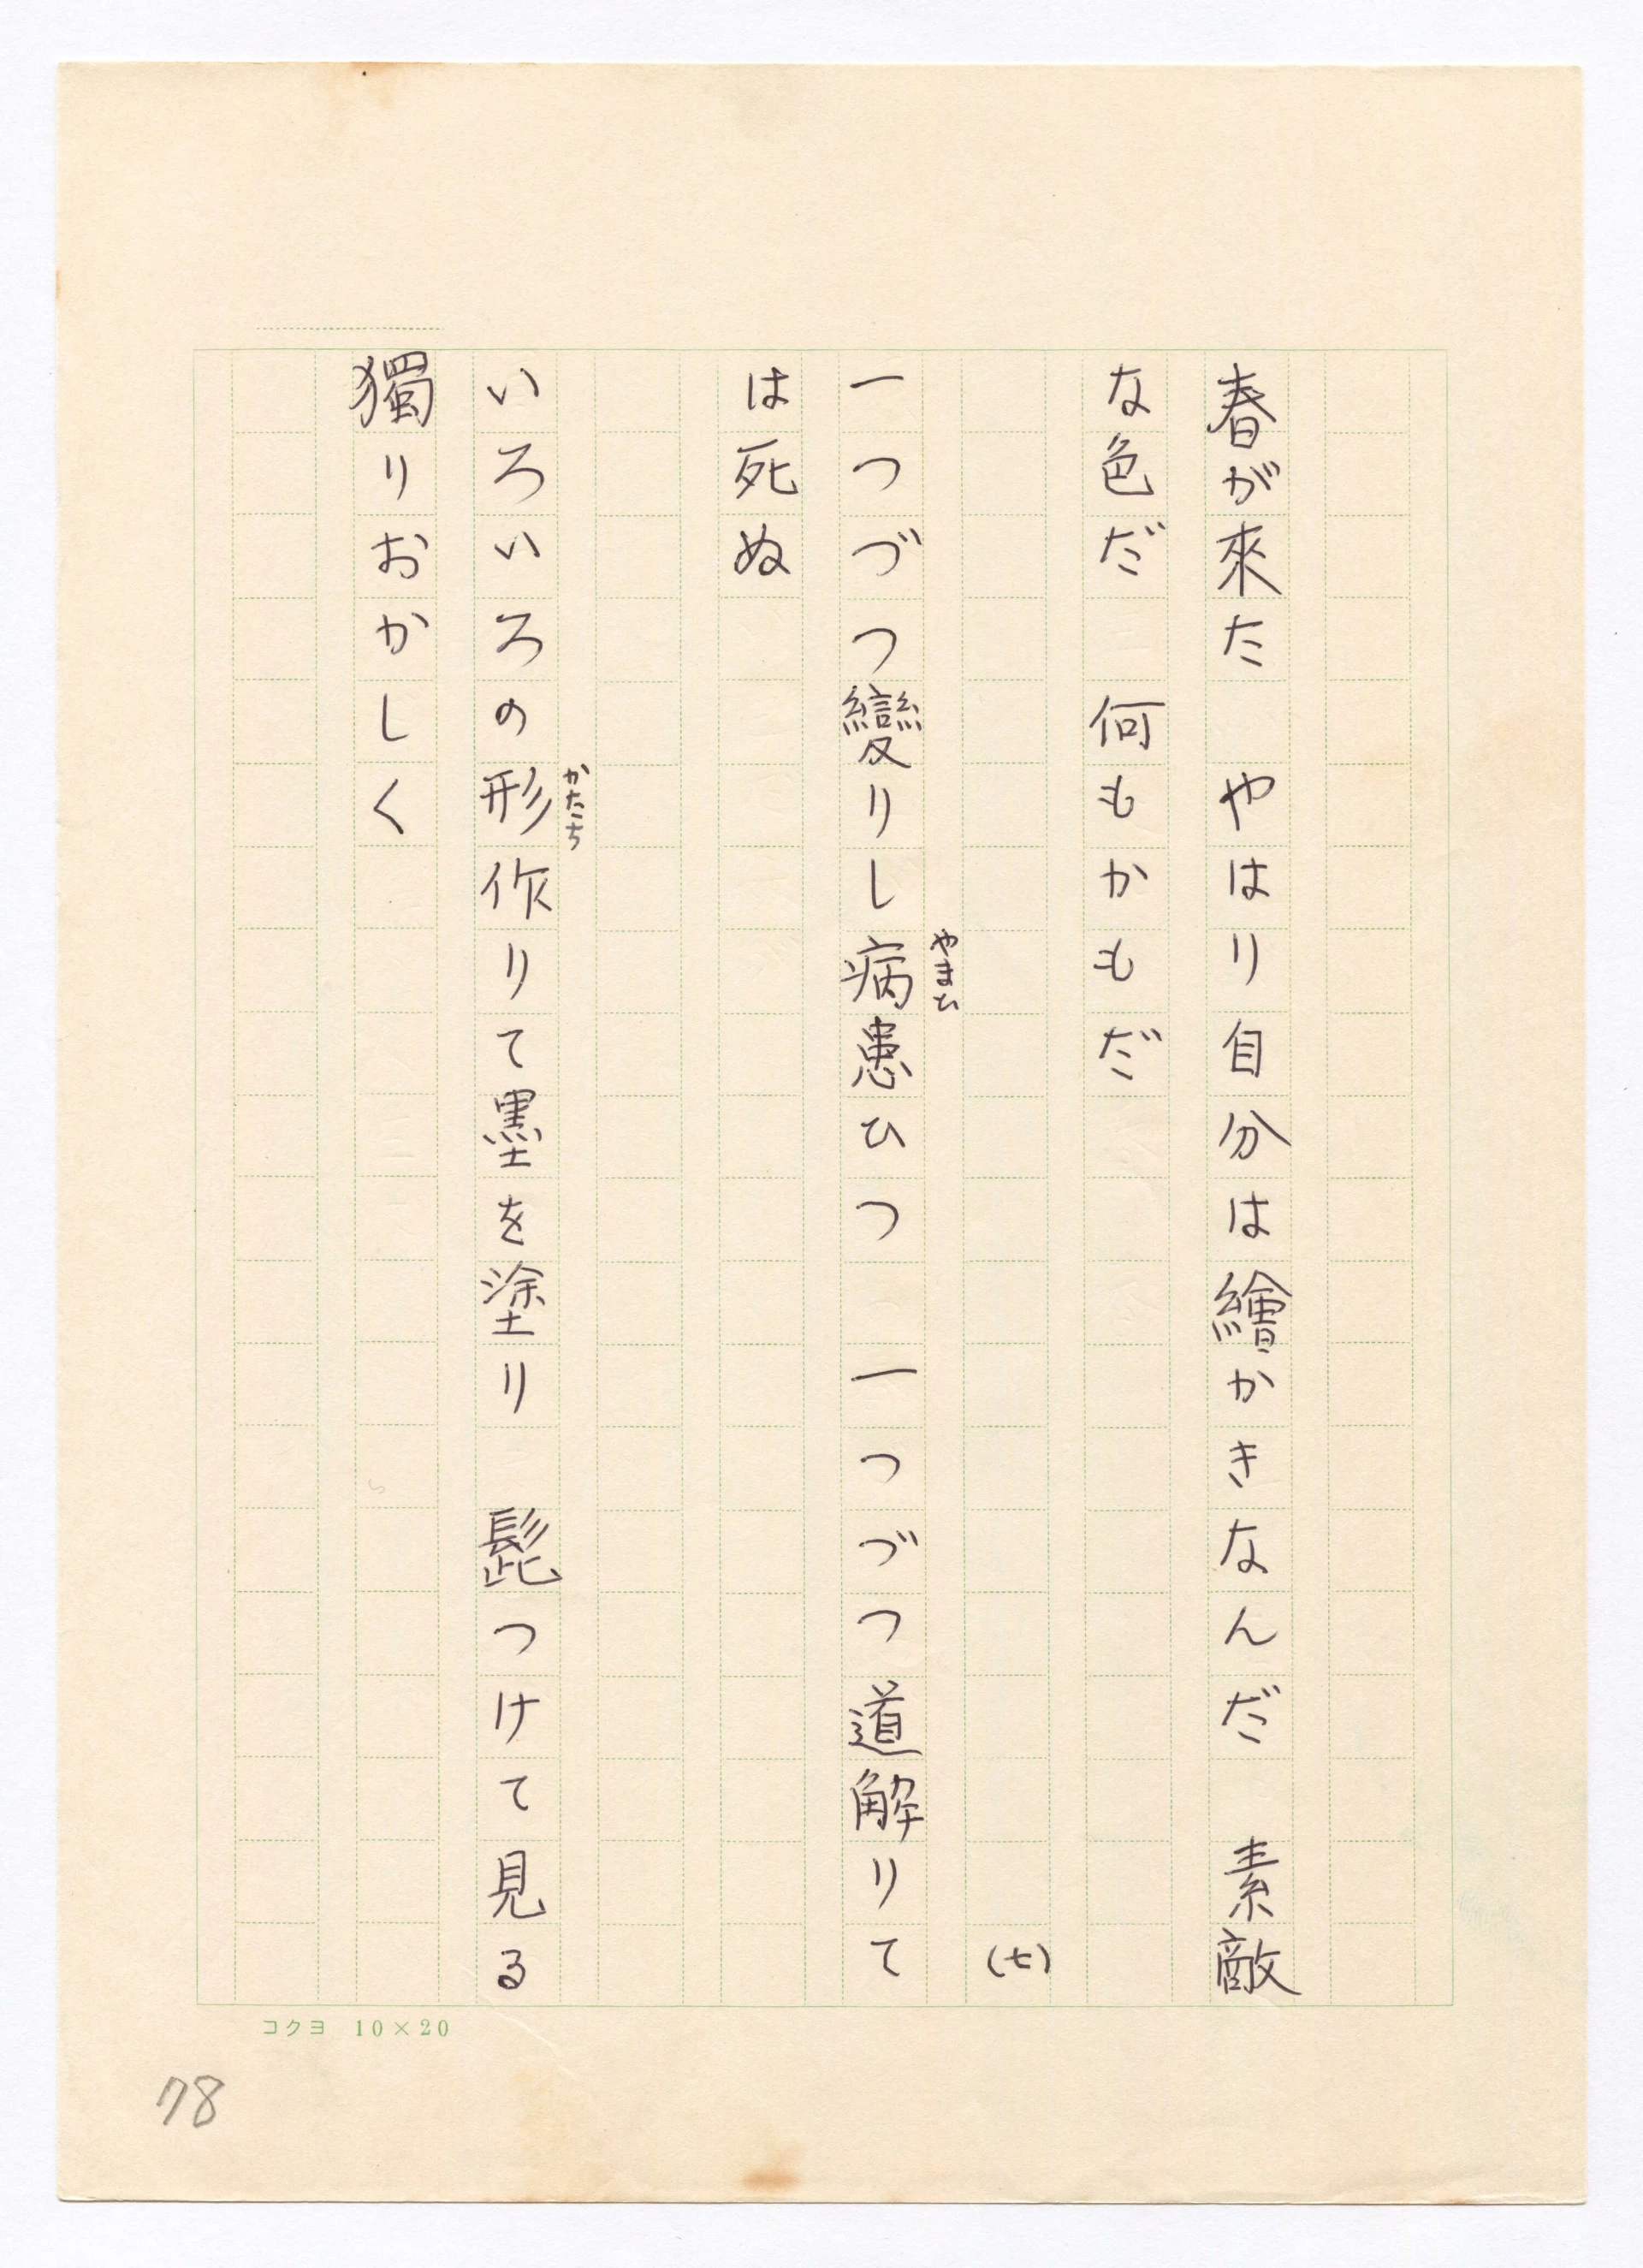 春が來た　やはり自分は繪かきなんだ　素敵
な色だ　何もかもだ
（七）
やまひ
一つづつ變りし病患ひつ　一つづつ道解りて
は死ぬ
かたち
いろいろの形作りて墨を塗り　髭つけて見る
獨りおかしく
コクヨ　10×20
78